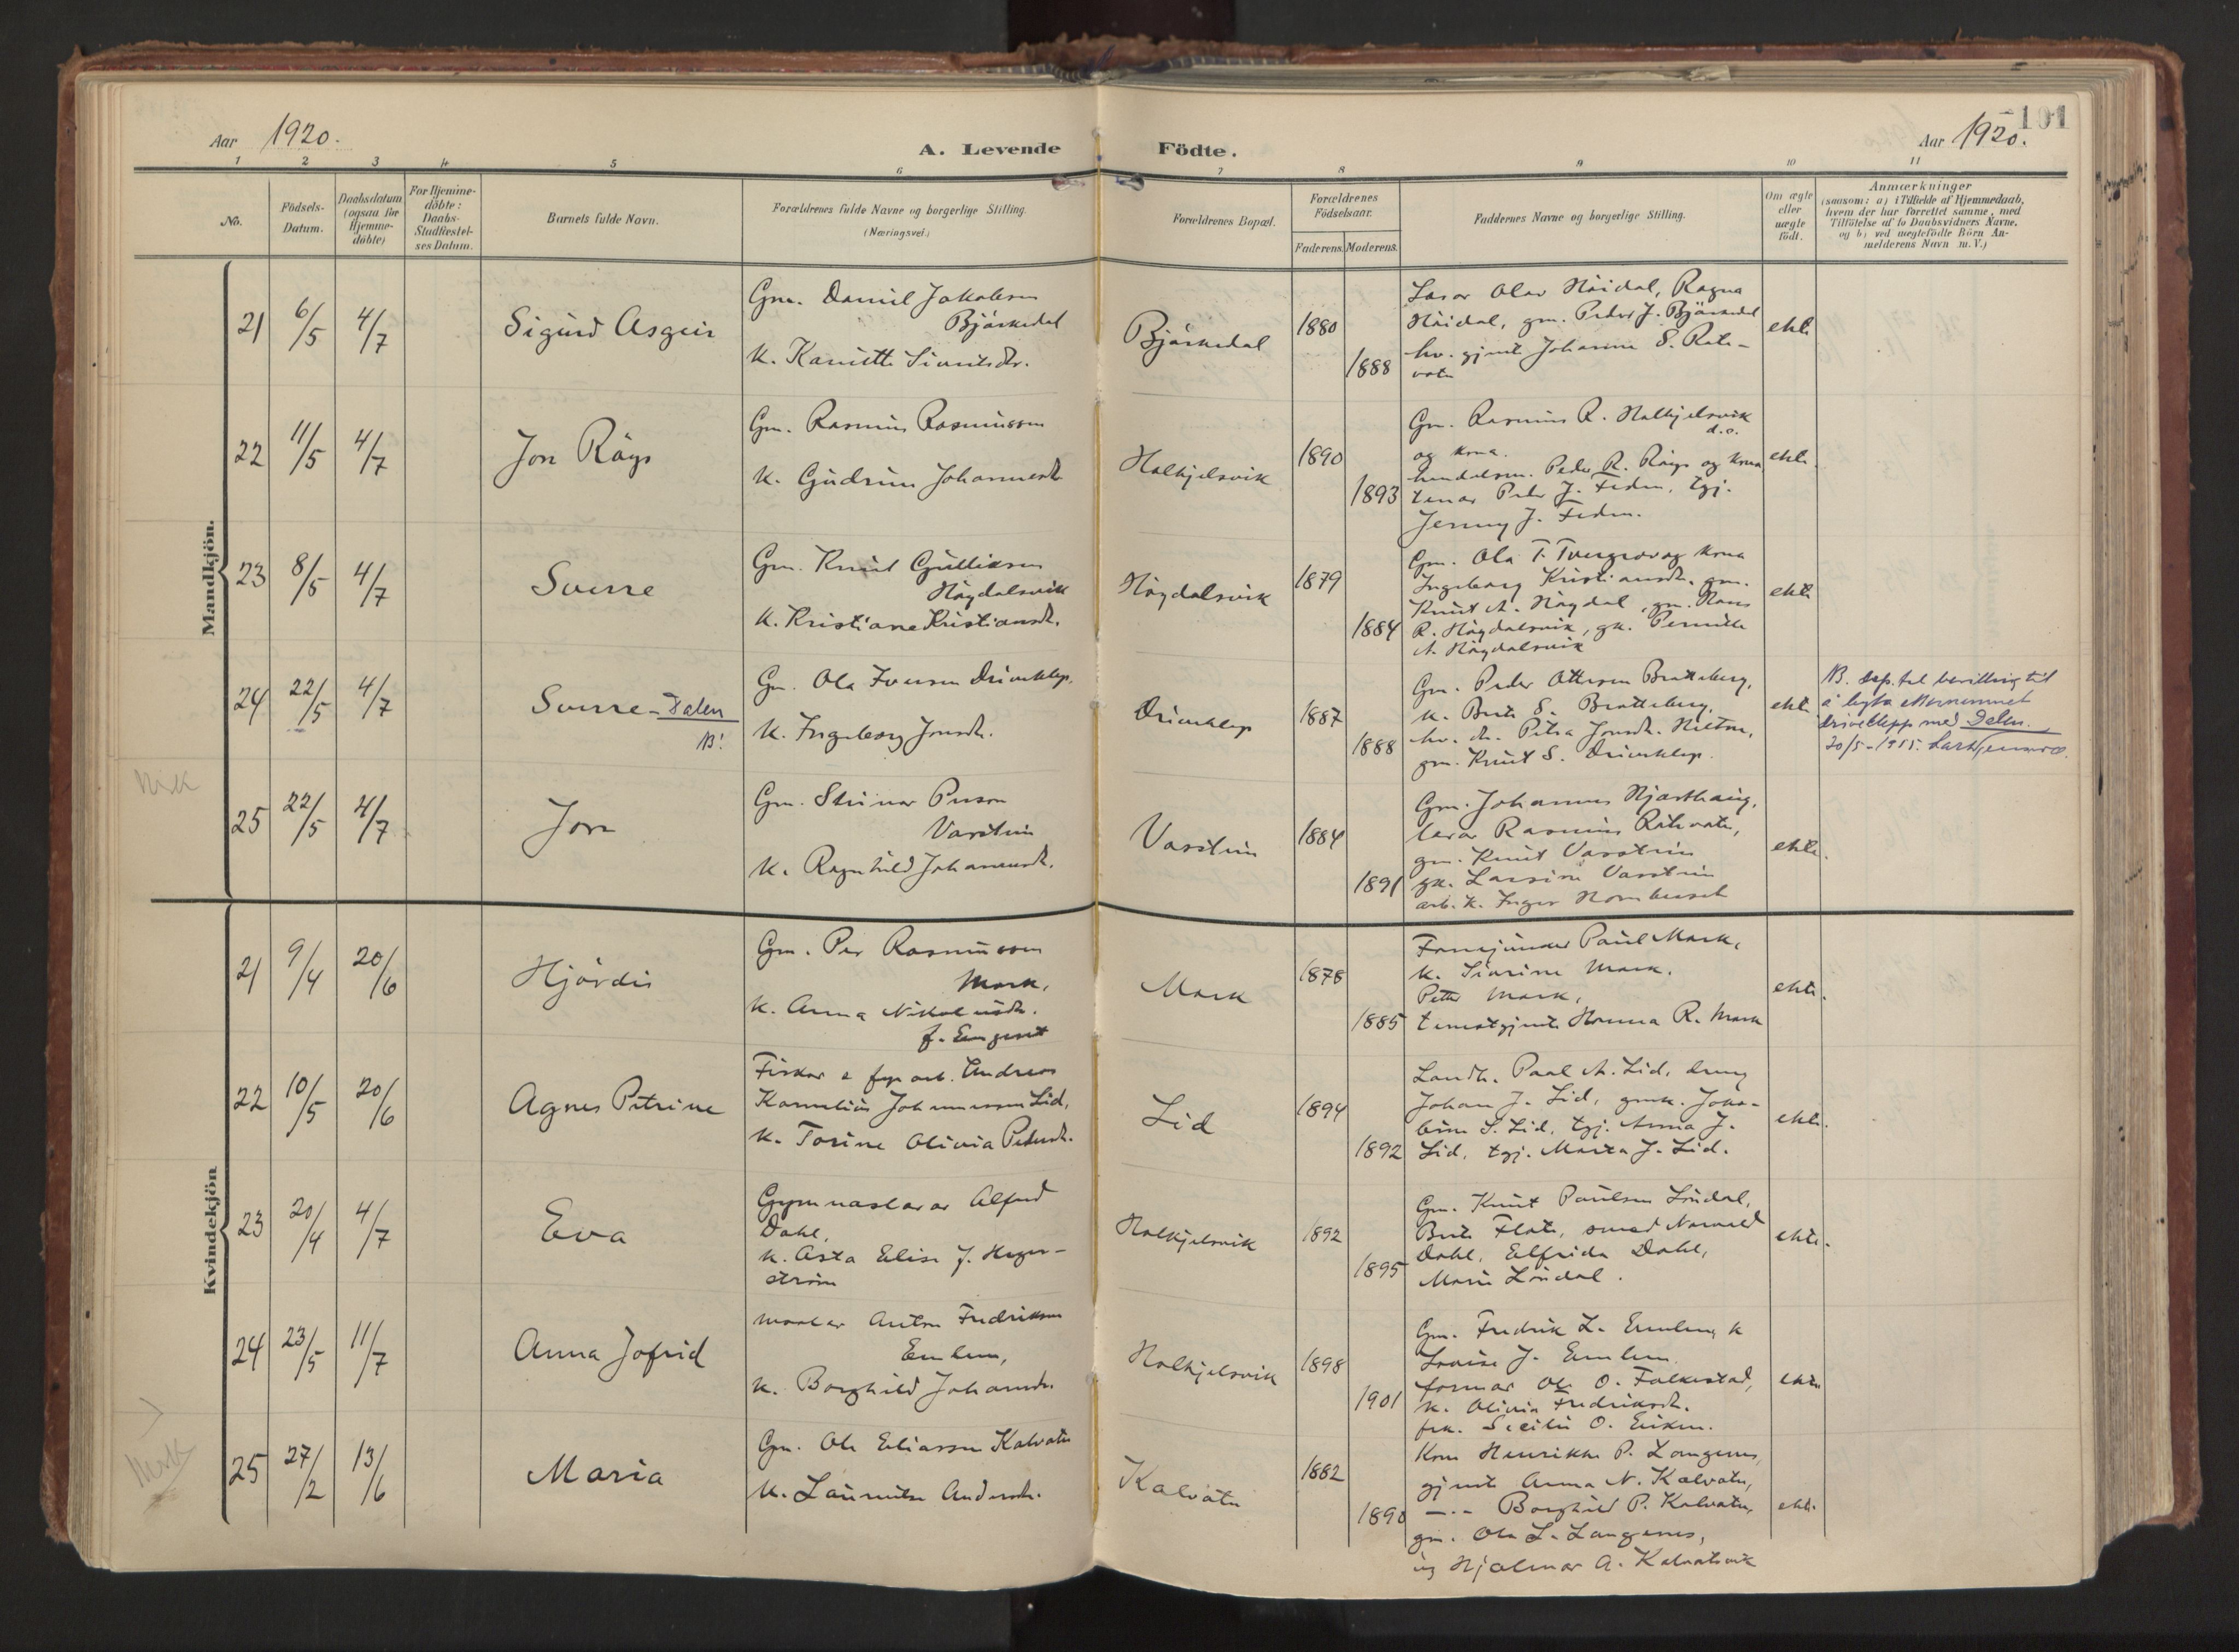 101
Aar 1920.
A. Levende Födte.
Aar 1920.
1 2 3 4 5 6 7 8 9 10 11
No.
Födsels-
Datum.
Daabsdatum
(ogsaa for
Hjemme-
döbte)
For Hjemme-
döbte:
Daabs-
Stadfæstel-
ses Datum.
Barnets fulde Navn.
Forældrenes fulde Navne og borgerlige Stilling.
(Næringsvei.)
Forældrenes Bopæl.
Forældrenes
Födselsaar.
Faderens. Moderens.
Faddernes Navne og borgerlige Stilling.
Om ægte
eller
uægte
födt.
Anmærkninger
(saasom: a) i Tilfælde af Hjemmedaab,
hvem der har forrettet samme, med
Tilföielse af to Daabsvidners Navne,
og b) ved uægtefödte Börn An-
melderens Navn m. V.)
Mandkjön.
21 6/5 4/7
Sigurd Asgeir
Gm. Daniel Jakobsen
Bjørkedal
K.
Bjørkedal
1880
1888
Lærar Olav Höidal, Ragna
Höidal, gm. Peder J. Bjørkedal
gjente Johanne S. Rote-
vatn
ekte
22 11/5 4/7
Jon Röys
Gm. Rasmus Rasmussen
K. Gudrun Johannesdr.
Halkjelsvik
1890
1893
Gm. Rasmus R. Halkjelsvik
d.o.
og kona.
handelsm. Peder R. Röys og kona
tenar Peter J. Feden, tgj.
Jenny J. Feden.
ekte.
23 8/5 4/7
Sverre
Gm. Knut Gulliksen
Högdalsvik
K. Kristiane Kristiansdr.
Högdalsvik
1879
1884
Gm. Ola T. Tvergrov og kona
Ingeborg Kristiansdr. gm.
Knut A. Högdal, gm. Hans
R. Högdalsvik, gk. Pernille
A. Högdalsvik
ekte
24 22/5 4/7
Sverre - Dalen
NB!
Gm. Ola Iversen Driveklep.
K. Ingeborg Jonsdr.
Driveklep
1887
1888
Gm. Peder Ottersen Bratteberg,
K. Brite S. Bratteberg,
Petra Jonsdr.
gm. Knut S. Driveklep.
ekte
NB. dep. tel bevilling til
å byta etternamnet
Driveklepp med Dalen.
20/5-1955.
25 22/5 4/7
Jon
Gm. Steinar Person
Vasstein
K. Ragnhild Johannesdr.
Vasstein
1884
1891
Gm. Johannes Hjorthaug,
lærar Rasmus
gm. Knut Vasstein
gk. Lassine Vasstein
arb. k. Inger
ekte.
Kvindekjön
21 9/4 20/6
Hjördis
Gm. Per Rasmusson
Mork,
K. Anna Nikolaisdr.
Mork
1878
1885
Paul Mork,
K. Siverine Mork.
Petter Mork,
tenestgjente Hanna R. Mork
ekte.
22 10/5 20/6
Agnes Petrine
Fiskar Andreas
Kornelius Johannessen Lid,
K. Torine Olivia Petersdr.
Lid
1894
1892
Landh. Paal A. Lid, dreng
Johan J. Lid, gmk. Jako-
bine S. Lid, tgj. Anna J.
Lid, tgj. Marta J. Lid.
ekte.
23 20/4 4/7
Eva
Gymnaslærar Alfred
Dahl,
K. Asta Elise f. Heger-
ström
Halkjelsvik
1892
1895
Gm. Knut Paulsen Löndal,
Brite Flote, smed Norvald
Dahl, Elfrida Dahl,
Marie Löndal.
ekte.
24 23/5 11/7
Anna Jofrid
malar Anton Fredriksen
Emlem,
K. Borghild Johansdr.
Halkjelsvik
1898
1901
Gm. Fredrik L. Emlem, k
Lovise J. Emlem.
formar Ole O. Folkestad,
k. Olivia Fredriksdr.
frk. Sicilie O. Eiksen.
ekte.
25 27/2 13/6
Maria
Gm. Ole Eliassen Kalvatn
K. Laurentse Andersdr.
Kalvatn
1882
1890
Kona Henrikke P. Langenes,
gjente Anna N. Kalvatn,
—"— Borghild P. Kalvatn,
gm. Ola L. Langenes,
ug Hjalmar A. Kalvatsvik
ekte.